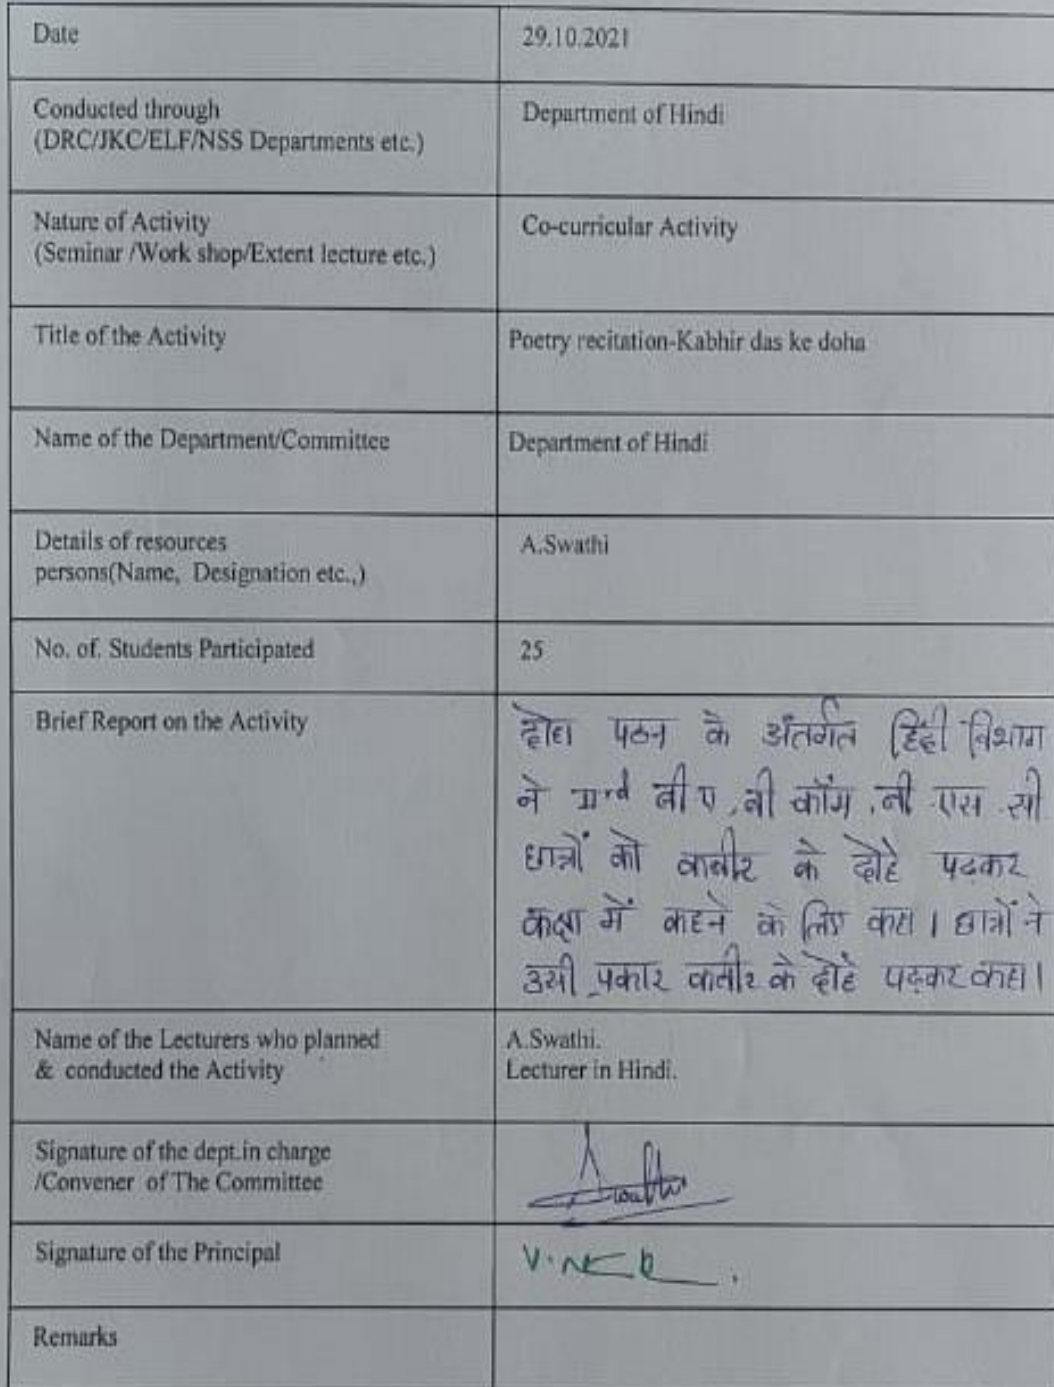 Date
29.10.2021
Conducted through
(DRC/JKC/ELF/NSS Departments etc.)
Department of Hindi
Nature of Activity
(Seminar /Work shop/Extent lecture etc.)
Co-curricular Activity
Title of the Activity
Poetry recitation-Kabhir das ke doha
Name of the Department/Committee
Department of Hindi
Details of resources
persons(Name, Designation etc.,)
A.Swathi
No. of. Students Participated
25
Brief Report on the Activity
दोहा पठन के अंतर्गत हिंदी विभाग
ने IIrd बी ए, बी कॉम, बी एस सी
छात्रों को कबीर के दोहे पढकर
कक्षा में कहने के लिए कहा । छात्रों ने
उसी प्रकार कबीर के दोहे पढ़कर कहा।
Name of the Lecturers who planned
& conducted the Activity
A.Swathi.
Lecturer in Hindi.
Signature of the dept.in charge
/Convener of The Committee
Signature of the Principal
Remarks